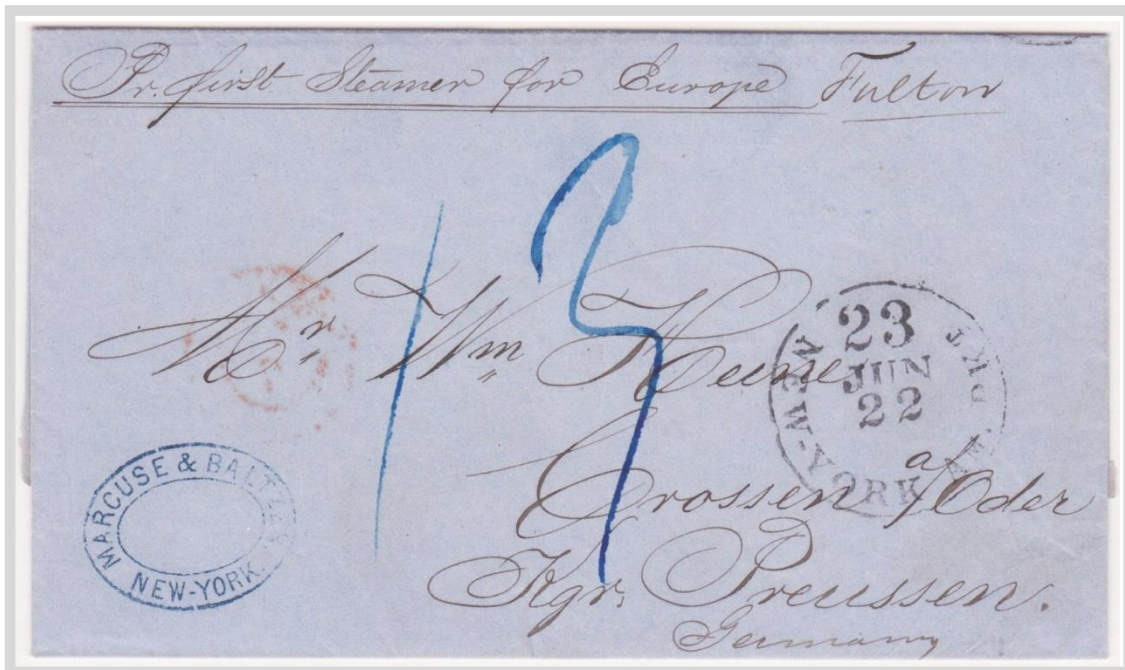 Pr. first Steamer for Europe Fulton
13
Mr Wm Heine
Crossen a/Oder
Kgr. Preussen.
Germany
NEW-YORK AM. PKT
23
JUN
22
MARCUSE & BALTZER.
NEW-YORK.